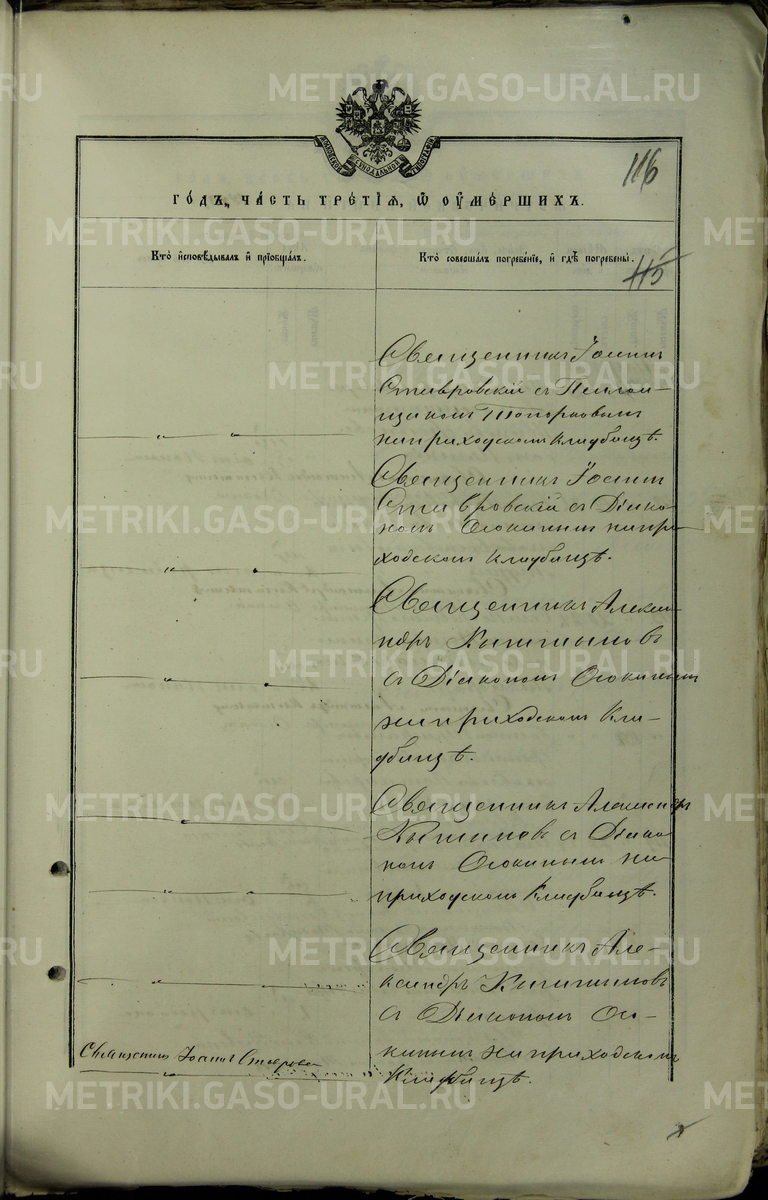 METRIKI.GASO-URAL.RU
МОСКОВСКОЙ СѴНОДАЛЬНОЙ ТИПОГРАФІИ
116
го́дъ, ча́сть тре́тїѧ, ѡ҆ ᲂу҆ме́ршихъ.
Кто̀ и҆сповѣ́дывалъ и҆ прїѡбща́лъ.
Кто̀ соверша́лъ погребе́нїе, и҆ гдѣ̀ погребены̀.
115
Священникъ Іоаннъ
Ставровскій съ Псалом-
щикомъ Топорковымъ
на приходскомъ кладбищѣ.
Священникъ Іоаннъ
Ставровскій съ Діако-
номъ Осокинымъ на при-
ходскомъ кладбищѣ.
Священникъ Алекса-
ндръ
съ Діакономъ Осокинымъ
на приходскомъ кла-
дбищѣ.
Священникъ Александръ
съ Діако-
номъ Осокинымъ на
приходскомъ кладбищѣ.
Священникъ Але-
ксандръ
съ Діакономъ Осо-
кинымъ на приходскомъ
кладбищѣ.
Священникъ Іоаннъ